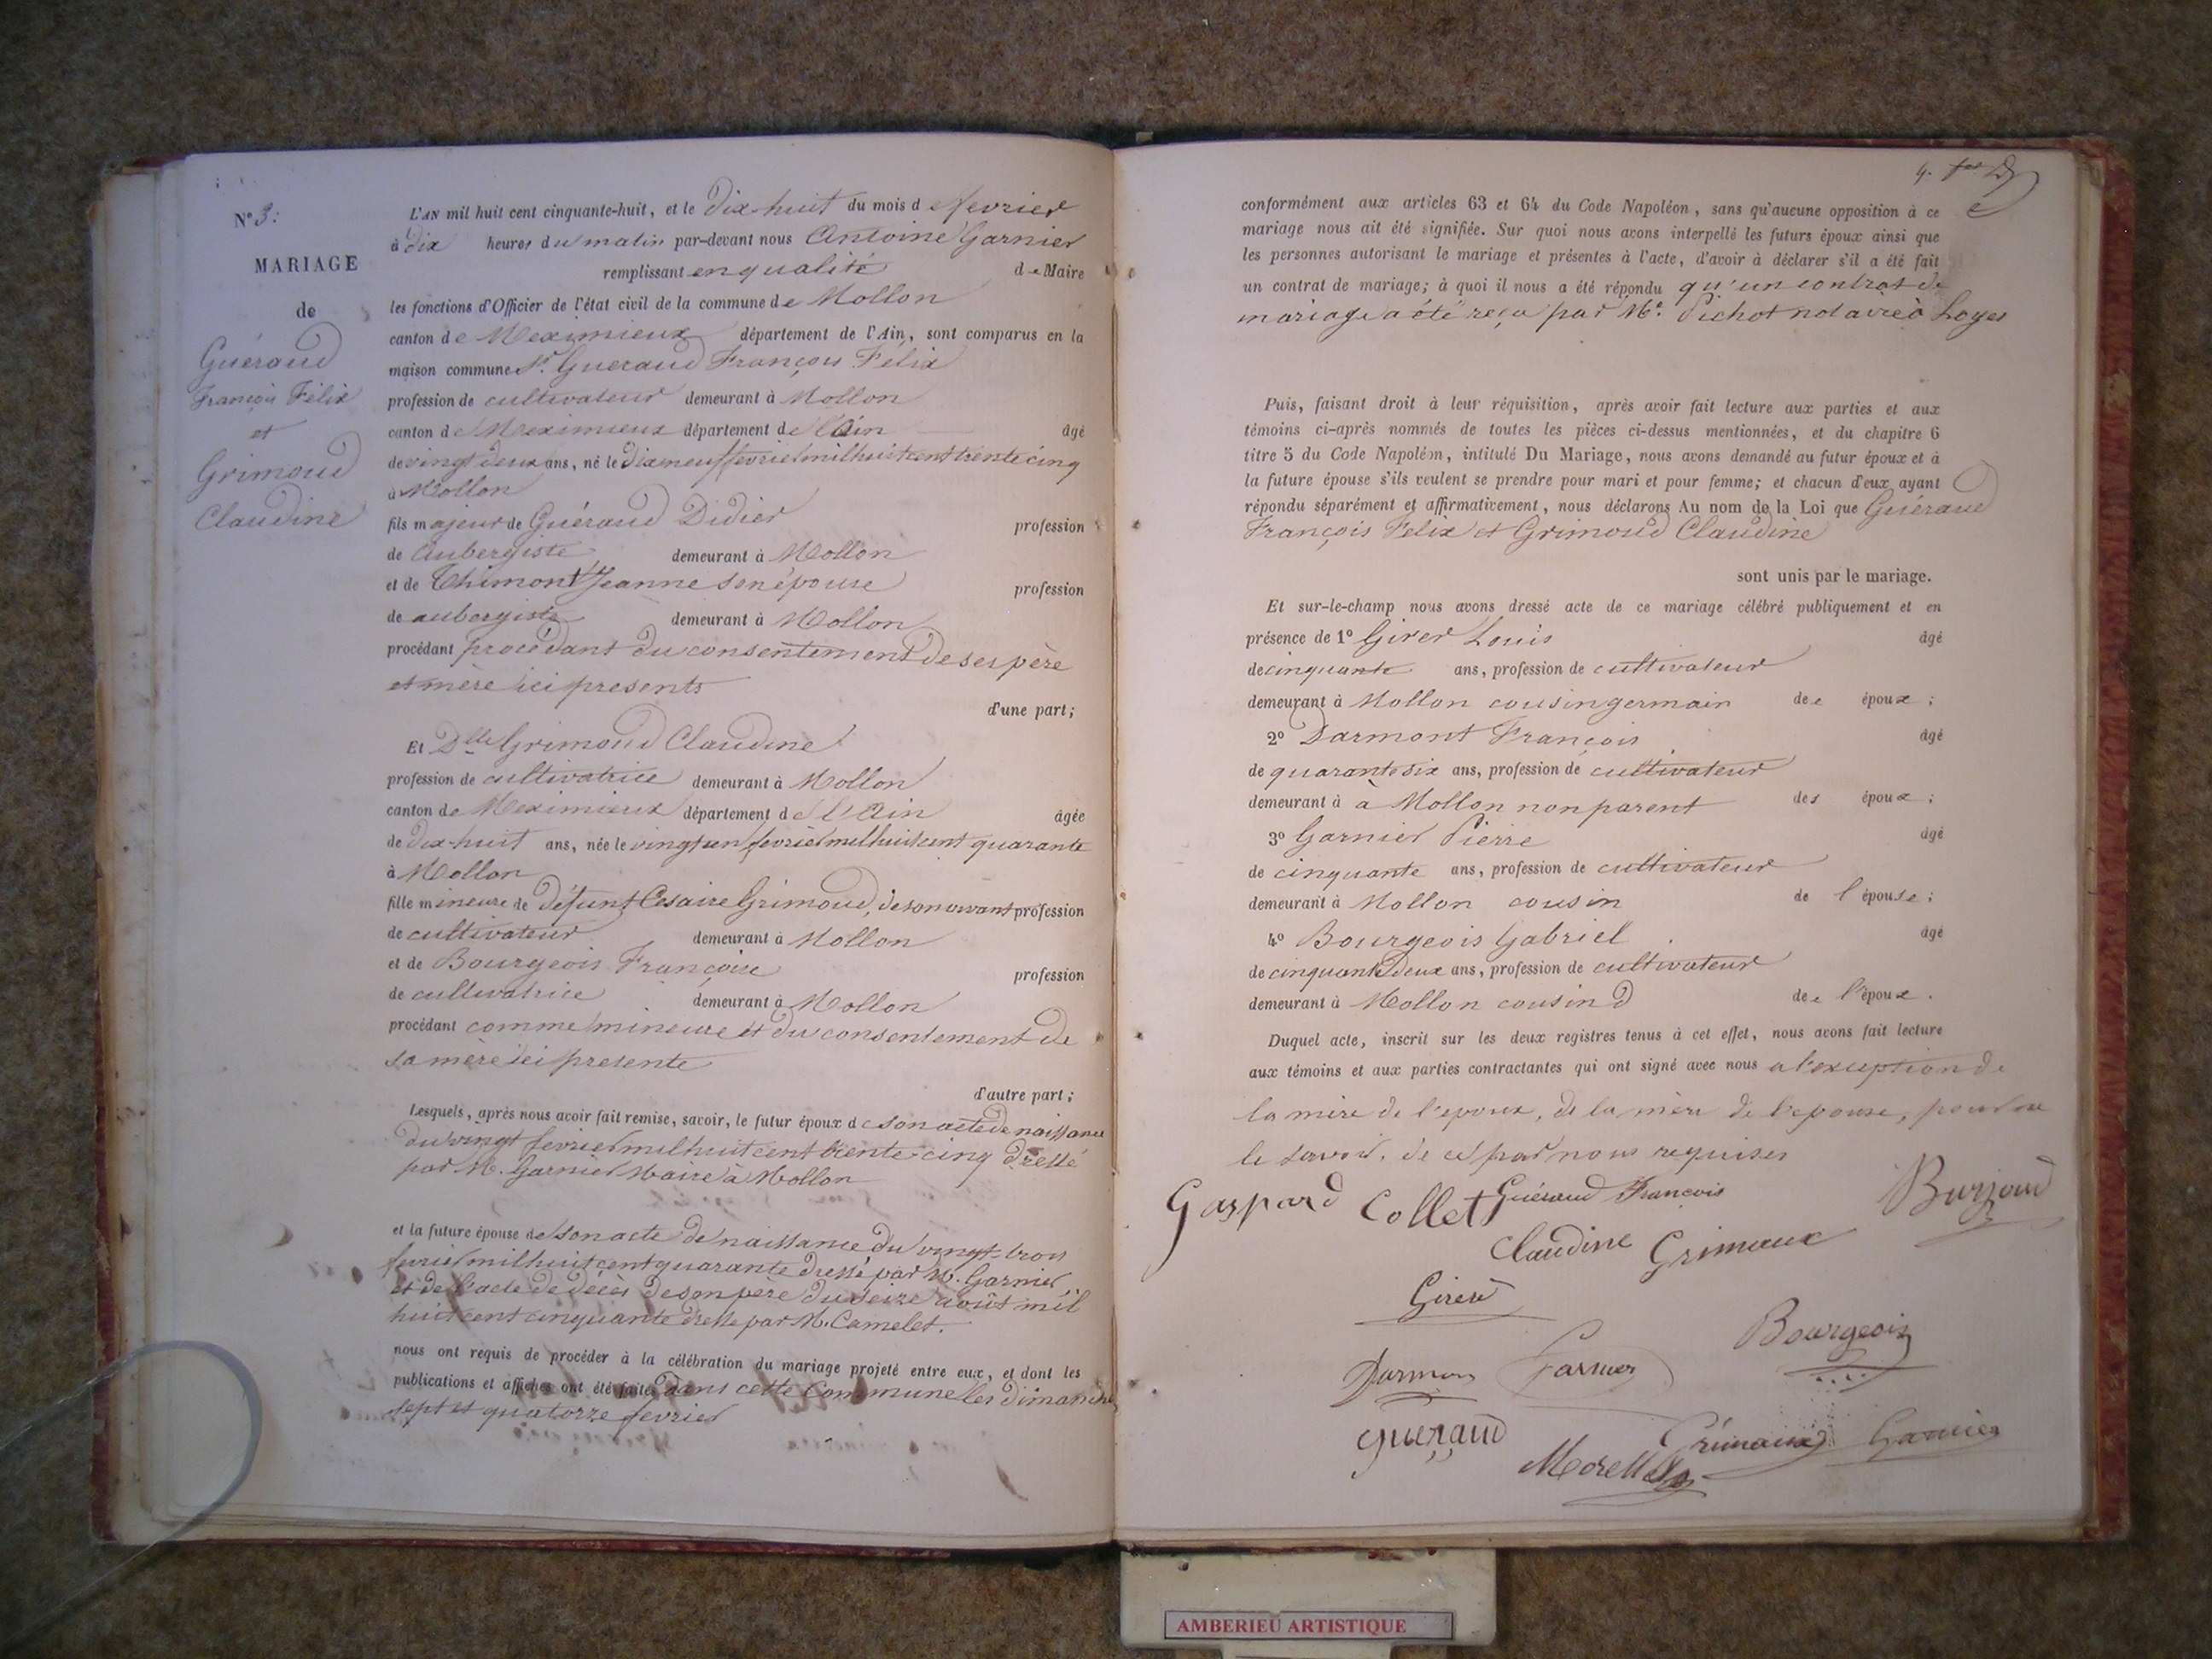 N° 3.
MARIAGE
de
Guéraud
François Félix
et
Grimoud
Claudine
L'AN mil huit cent cinquante-huit, et le dix-huit du mois de fevrier
à dix heures du matin par-devant nous Antoine Garnier
remplissant en qualité de Maire
les fonctions d'Officier de l'état civil de la commune de Mollon
canton de Meximieux département de l'Ain, sont comparus en la
maison commune Sr. Gueraud François Félix
profession de cultivateur demeurant à Mollon
canton de Meximieux département de l'Ain âgé
de vingt deux ans, né le dix neuf fevrier mil huit cent trente cinq
à Mollon
fils majeur de Guéraud Didier profession
de aubergiste demeurant à Mollon
et de Thimont Jeanne son épouse profession
de aubergiste demeurant à Mollon
procédant procédant du consentement de ses père
et mère ici presents
d'une part;
Et Dlle Grimoud Claudine
profession de cultivatrice demeurant à Mollon
canton de Meximieux département de l'Ain âgée
de dix-huit ans, née le vingt un fevrier mil huit cent quarante
à Mollon
fille mineure de défunt Cesaire Grimoud, de son vivant profession
de cultivateur demeurant à Mollon
et de Bourgeois Françoise profession
de cultivatrice demeurant à Mollon
procédant comme mineure et du consentement de
sa mère ici presente
d'autre part;
Lesquels, après nous avoir fait remise, savoir, le futur époux de son acte de naissance
du vingt fevrier mil huit cent trente-cinq dressé
par M. Garnier Maire à Mollon
et la future épouse de son acte de naissance du vingt-trois
fevrier mil huit cent quarante dressé par M. Garnier
et de l'acte de décès de son père du seize août mil
huit cent cinquante dressé par M. Camelet.
nous ont requis de procéder à la célébration du mariage projeté entre eux, et dont les
publications et affiches ont été faites dans cette Commune les dimanche
sept et quatorze fevrier
4.
conformément aux articles 63 et 64 du Code Napoléon, sans qu'aucune opposition à ce
mariage nous ait été signifiée. Sur quoi nous avons interpellé les futurs époux ainsi que
les personnes autorisant le mariage et présentes à l'acte, d'avoir à déclarer s'il a été fait
un contrat de mariage; à quoi il nous a été répondu qu'un contrat de
mariage a été reçu par Me. Pichot notaire à Loyes
Puis, faisant droit à leur réquisition, après avoir fait lecture aux parties et aux
témoins ci-après nommés de toutes les pièces ci-dessus mentionnées, et du chapitre 6
titre 5 du Code Napoléon, intitulé Du Mariage, nous avons demandé au futur époux et à
la future épouse s'ils veulent se prendre pour mari et pour femme; et chacun d'eux ayant
répondu séparément et affirmativement, nous déclarons Au nom de la Loi que Guéraud
François Felix et Grimoud Claudine
sont unis par le mariage.
Et sur-le-champ nous avons dressé acte de ce mariage célébré publiquement et en
présence de 1° Girer Louis âgé
de cinquante ans, profession de cultivateur
demeurant à Mollon cousin germain de époux;
2° Darmont François âgé
de quarante six ans, profession de cultivateur
demeurant à à Mollon non parent des époux;
3° Garnier Pierre âgé
de cinquante ans, profession de cultivateur
demeurant à Mollon cousin de l'épouse;
4° Bourgeois Gabriel âgé
de cinquante deux ans, profession de cultivateur
demeurant à Mollon cousin de l'époux.
Duquel acte, inscrit sur les deux registres tenus à cet effet, nous avons fait lecture
aux témoins et aux parties contractantes qui ont signé avec nous a l'exception de
la mère de l'epoux, de la mère de l'epouse, pour ne
le savoir, de ce par nous requises
Gaspard Collet Guéraud François
Claudine Grimaux
Girer
Bourgeois
Darmon
Guéraud
Grimaux Garnier
Morellet
AMBERIEU ARTISTIQUE